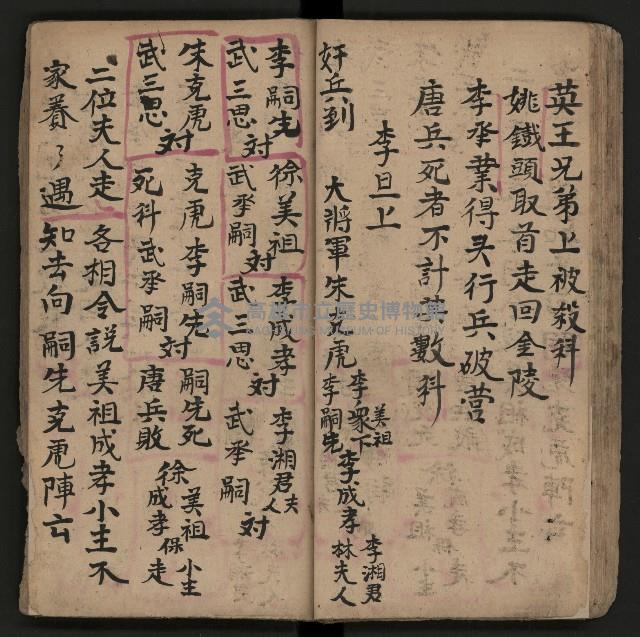 英王兄弟上被殺科
姚鐵頭取首走回金陵
李承業得头行兵破营
唐兵死者不計 數科
李旦上
奸兵到 大将軍朱克虎 李嗣先 李衆下 美祖 李成孝 林夫人 李湘君
李嗣先 武三思 対
徐美祖 武承嗣 対
李成孝 武三思 対
李湘君 夫人 武承嗣 対
朱克虎 武三思 対
克虎死科
李嗣先 武承嗣 対
嗣先死 唐兵敗
徐美祖 成孝 保小主走
二位夫人走 各相令説美祖成孝小主不
家賽了遇 知去向嗣先克虎陣亡
高雄市立歷史博物館
KAOHSIUNG MUSEUM OF HISTORY